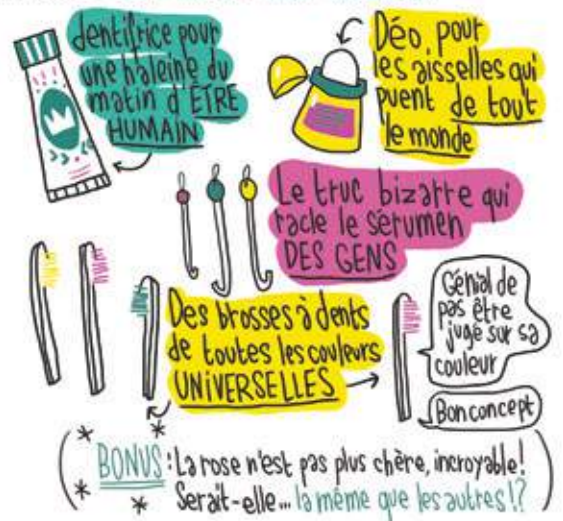 dentifrice pour
une haleine du
matin d'ÊTRE
HUMAIN
Déo, pour
les aisselles qui
puent de tout
le monde
Le truc bizarre qui
racle le sérumen
DES GENS
Des brosses à dents
de toutes les couleurs
UNIVERSELLES
Génial de
pas être
jugé sur sa
couleur
Bon concept
(BONUS : La rose n'est pas plus chère, incroyable !
Serait-elle... la même que les autres !?)